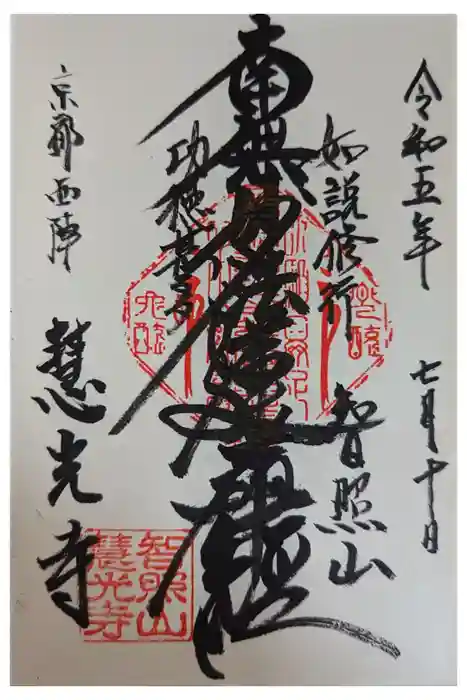 令和五年 七月十日
如説修行
智照山
南無妙法蓮華経
功徳甚多
京都西陣
慧光寺
智照山
慧光寺